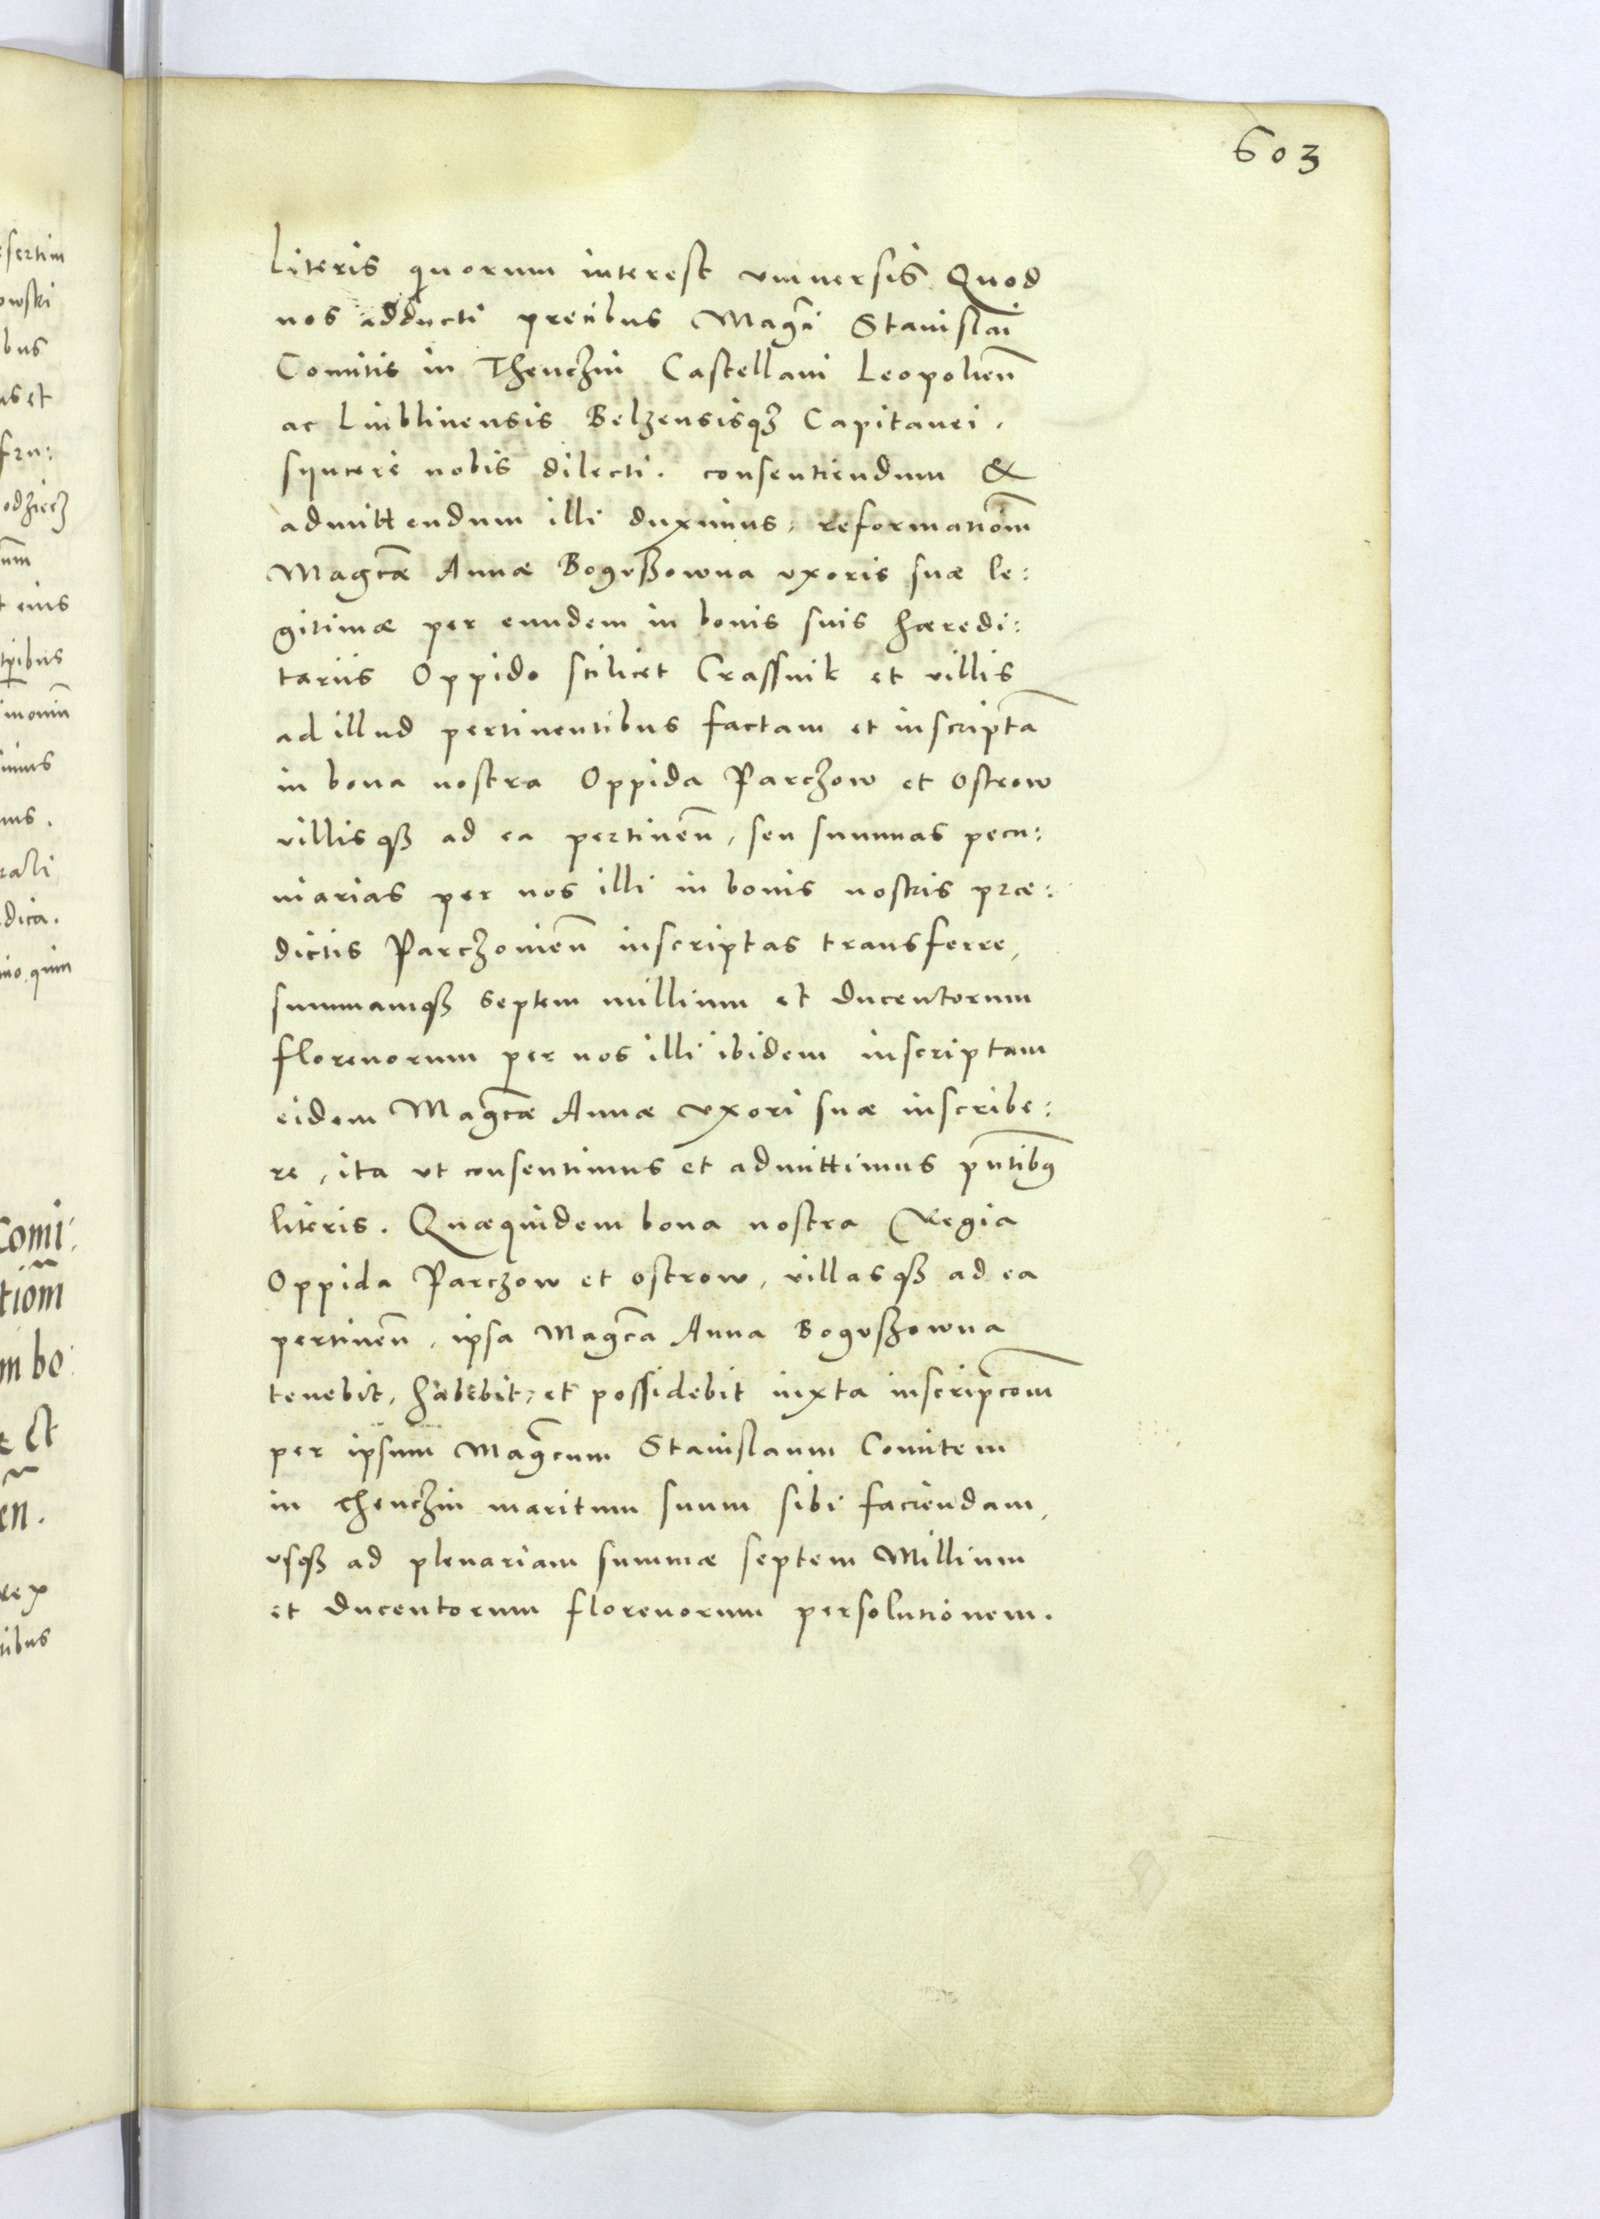 603
literis quorum interest vniuersis. Quod
nos adducti precibus Magci Stanislai
Comitis in Thenczin Castellani Leopolien̄
ac Liublinensis Belzensisqȝ Capitanei,
syncere nobis dilecti. consentiendum &
admittendum illi duximus, reformatiom̄
Magcæ Annæ Bogusßowna vxoris suæ le:
gitimæ per eundem in bonis suis hæredi:
tariis Oppido scilicet Crassnik et villis
ad illud pertinentibus factam et inscriptā
in bona nostra Oppida Parczow et Ostrow
villisqȝ ad ea pertinen̄, seu summas pecu:
niarias per nos illi in bonis nostris præ:
dictis Parczouien̄ inscriptas transferre,
summamqȝ septem millium et ducentorum
florenorum per nos illi ibidem inscriptam
eidem Magcæ Annæ vxori suæ inscribe:
re, ita vt consentimus et admittimus pn̄tibus
literis. Quæquidem bona nostra Regia
Oppida Parczow et Ostrow, villasqȝ ad ea
pertinen̄, ipsa Magca Anna Bogusßowna
tenebit, habebit, et possidebit iuxta inscripcom̄
per ipsum Magcum Stanislaum Comitem
in Thenczin maritum suum sibi faciendam,
vsqȝ ad plenariam summæ septem Millium
et ducentorum florenorum persolutionem.